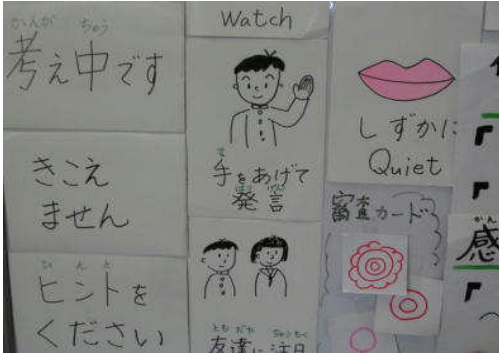 かんが ちゅう
考え中です
きこえ
ません
ひんと
ヒントを
ください
Watch
て
手をあげて
はつげん
発言
ともだち ちゅうもく
友達に注目
しずかに
Quiet
審査カード
かん
感